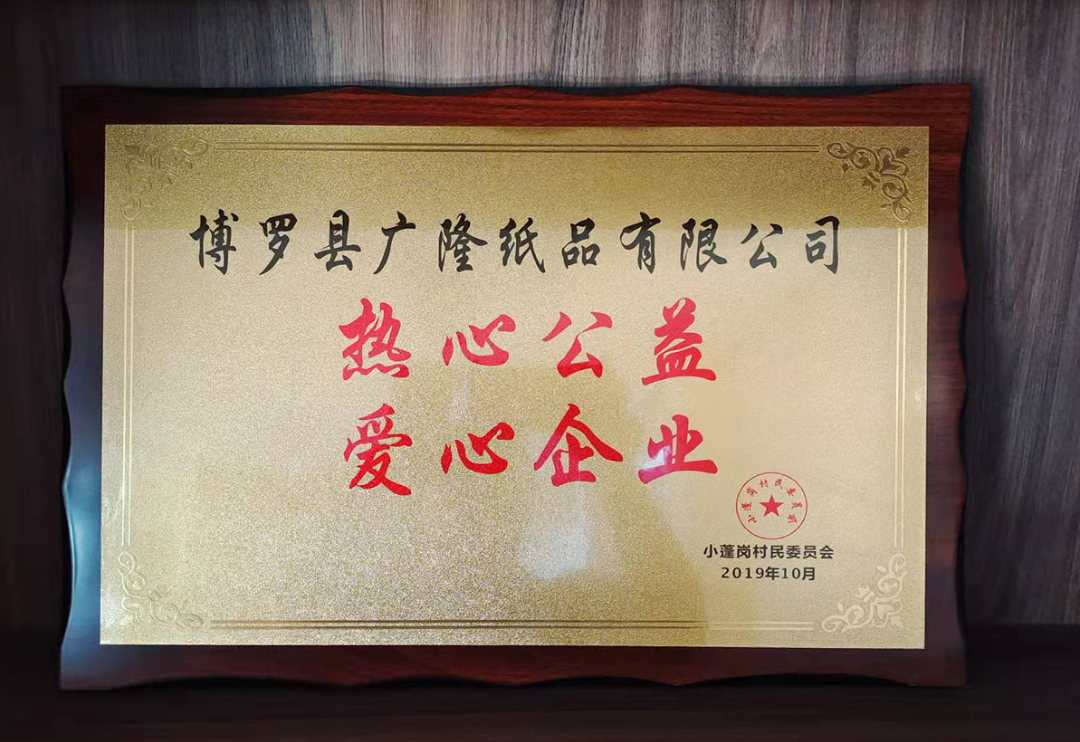 博罗县广隆纸品有限公司
热心公益
爱心企业
小蓬岗村民委员会
小蓬岗村民委员会
2019年10月